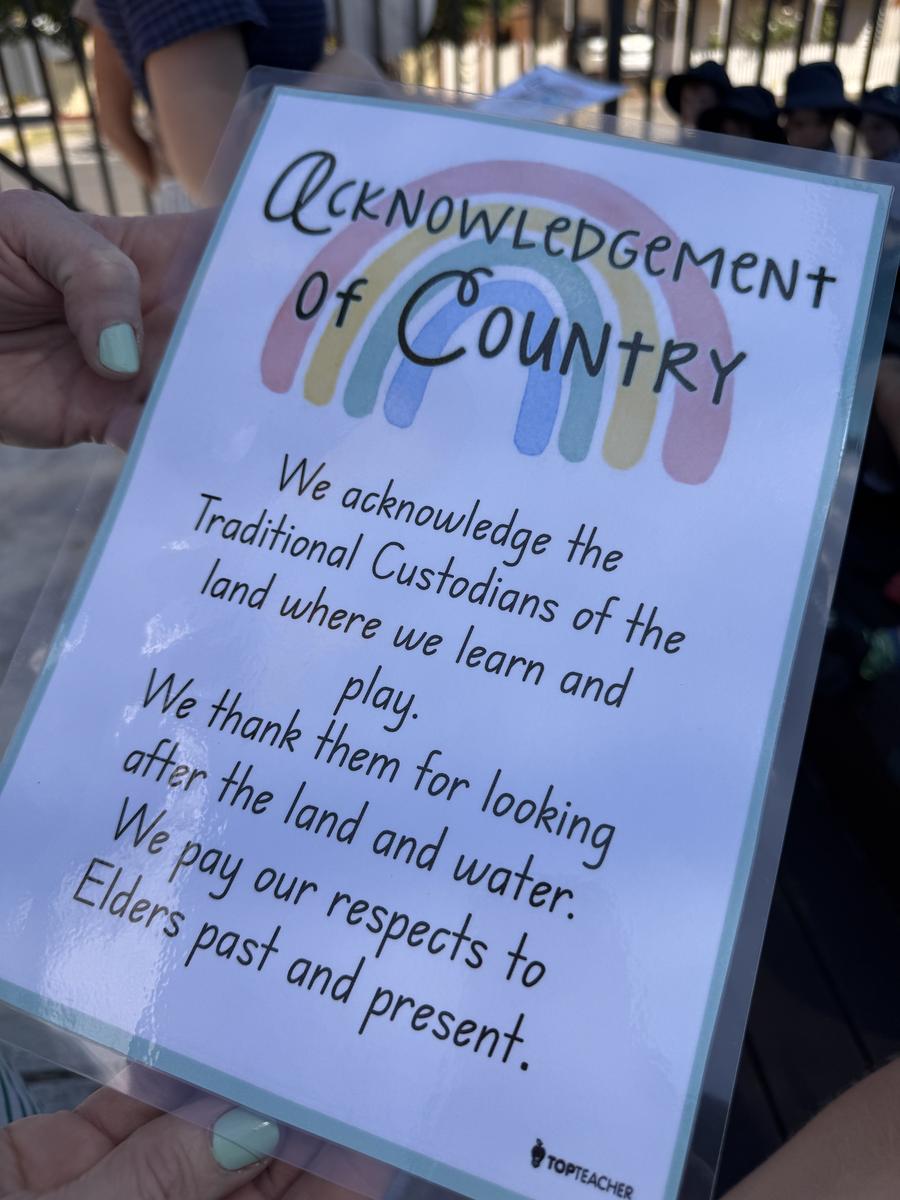 Acknowledgement
Of Country
We acknowledge the
Traditional Custodians of the
land where we learn and
play.
We thank them for looking
after the land and water.
We pay our respects to
Elders past and present.
TOPTEACHER